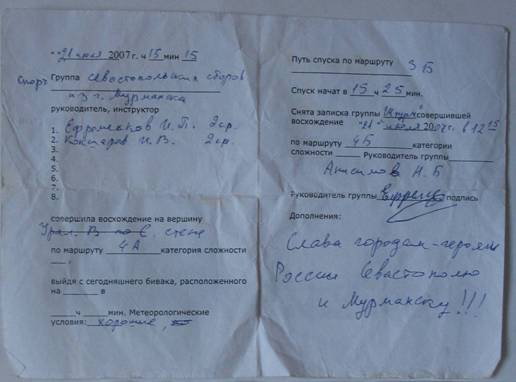 "21 июля 2007г. ч 15 мин 15
Спорт Группа севастопольских сборов
из г. Мурманска
руководитель, инструктор
1. Ефроменков И. П. 2ср.
2. И. В. 2ср.
3.
4.
5.
6.
7.
8.
совершила восхождение на вершину
В по С. стене
по маршруту 4А категория сложности
выйдя с сегодняшнего бивака, расположенного
на в
ч мин. Метеорологические
условия: хорошие,
Путь спуска по маршруту 3Б
Спуск начат в 15 ч 25 мин.
Снята записка группы совершившей
восхождение "21" июля 2007г. в 12 15
по маршруту 4Б категории
сложности Руководитель группы
Анисимов Н. Б
Руководитель группы подпись
Дополнения:
Слава городам-героям
России Севастополю
и Мурманску!!!